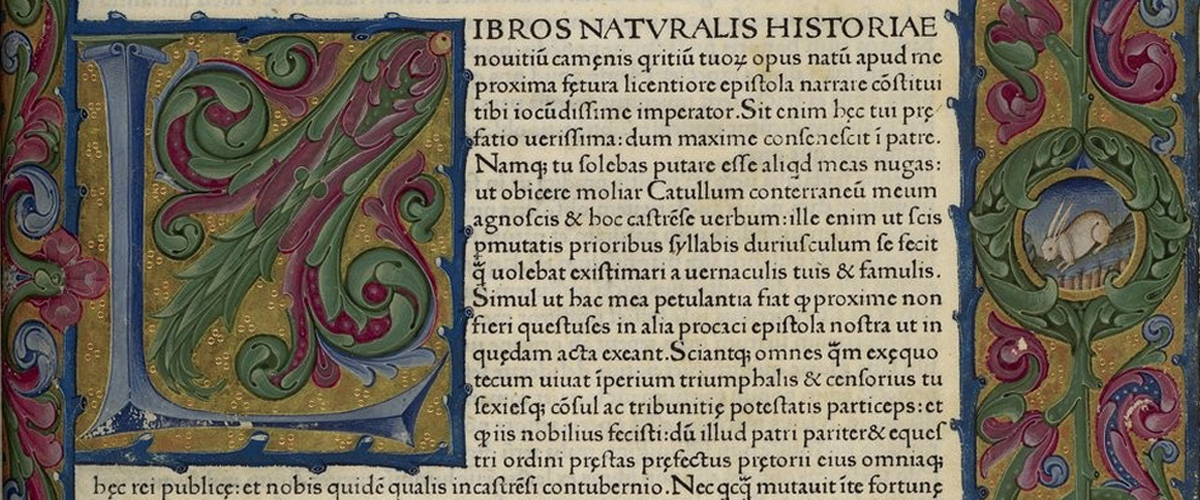 LIBROS NATVRALIS HISTORIAE
nouitiũ camęnis qritiũ tuoꝝ opus natũ apud me
proxima fętura licentiore epiſtola narrare cõſtitui
tibi iocũdiſſime imperator.Sit enim hęc tui prę
fatio ueriſſima: dum maxime conſeneſcit ĩ patre.
Namq; tu ſolebas putare eſſe aliqd meas nugas:
ut obicere moliar Catullum conterraneũ meum
agnoſcis & hoc caſtrẽſe uerbum: ille enim ut ſcis
ꝑmutatis prioribus ſyllabis duriuſculum ſe fecit
q̃ uolebat exiſtimari a uernaculis tuis & famulis.
Simul ut hac mea petulantia fiat ꝙ proxime non
fieri queſtuſes in alia procaci epiſtola noſtra ut in
quędam acta exeant.Sciantq; omnes q̃m exęquo
tecum uiuat ĩperium triumphalis & cenſorius tu
ſexieſq; cõſul ac tribunitię poteſtatis particeps: et
ꝙ iis nobilius feciſti: dũ illud patri pariter& equeſ
tri ordini pręſtas pręfectus prętorii eius omniaq;
hęc rei publicę: et nobis quidẽ qualis incaſtrẽſi contubernio.Nec qcꝙ mutauit ĩte fortunę